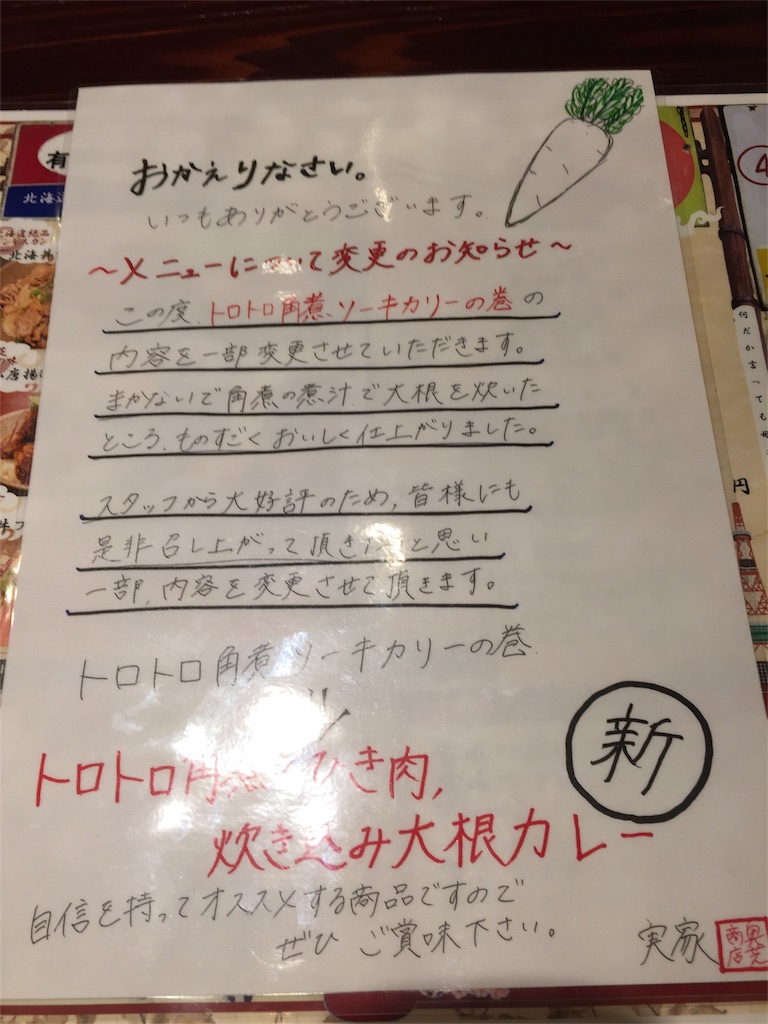 おかえりなさい。
いつもありがとうございます。
～メニューについて変更のお知らせ～
この度、トロトロ角煮、ソーキカリーの巻の
内容を一部変更させていただきます。
まかないで角煮の煮汁で大根を炊いた
ところ、ものすごくおいしく仕上がりました。
スタッフから大好評のため、皆様にも
是非召し上がって頂きたいと思い
一部、内容を変更させて頂きます。
トロトロ角煮 ソーキカリーの巻
トロトロ角煮 ひき肉,
新
炊き込み大根カレー
自信を持ってオススメする商品ですので
ぜひ ご賞味下さい。
実家
商店
有
北海道
北海丼
唐揚げ
円
何だか言っても
4